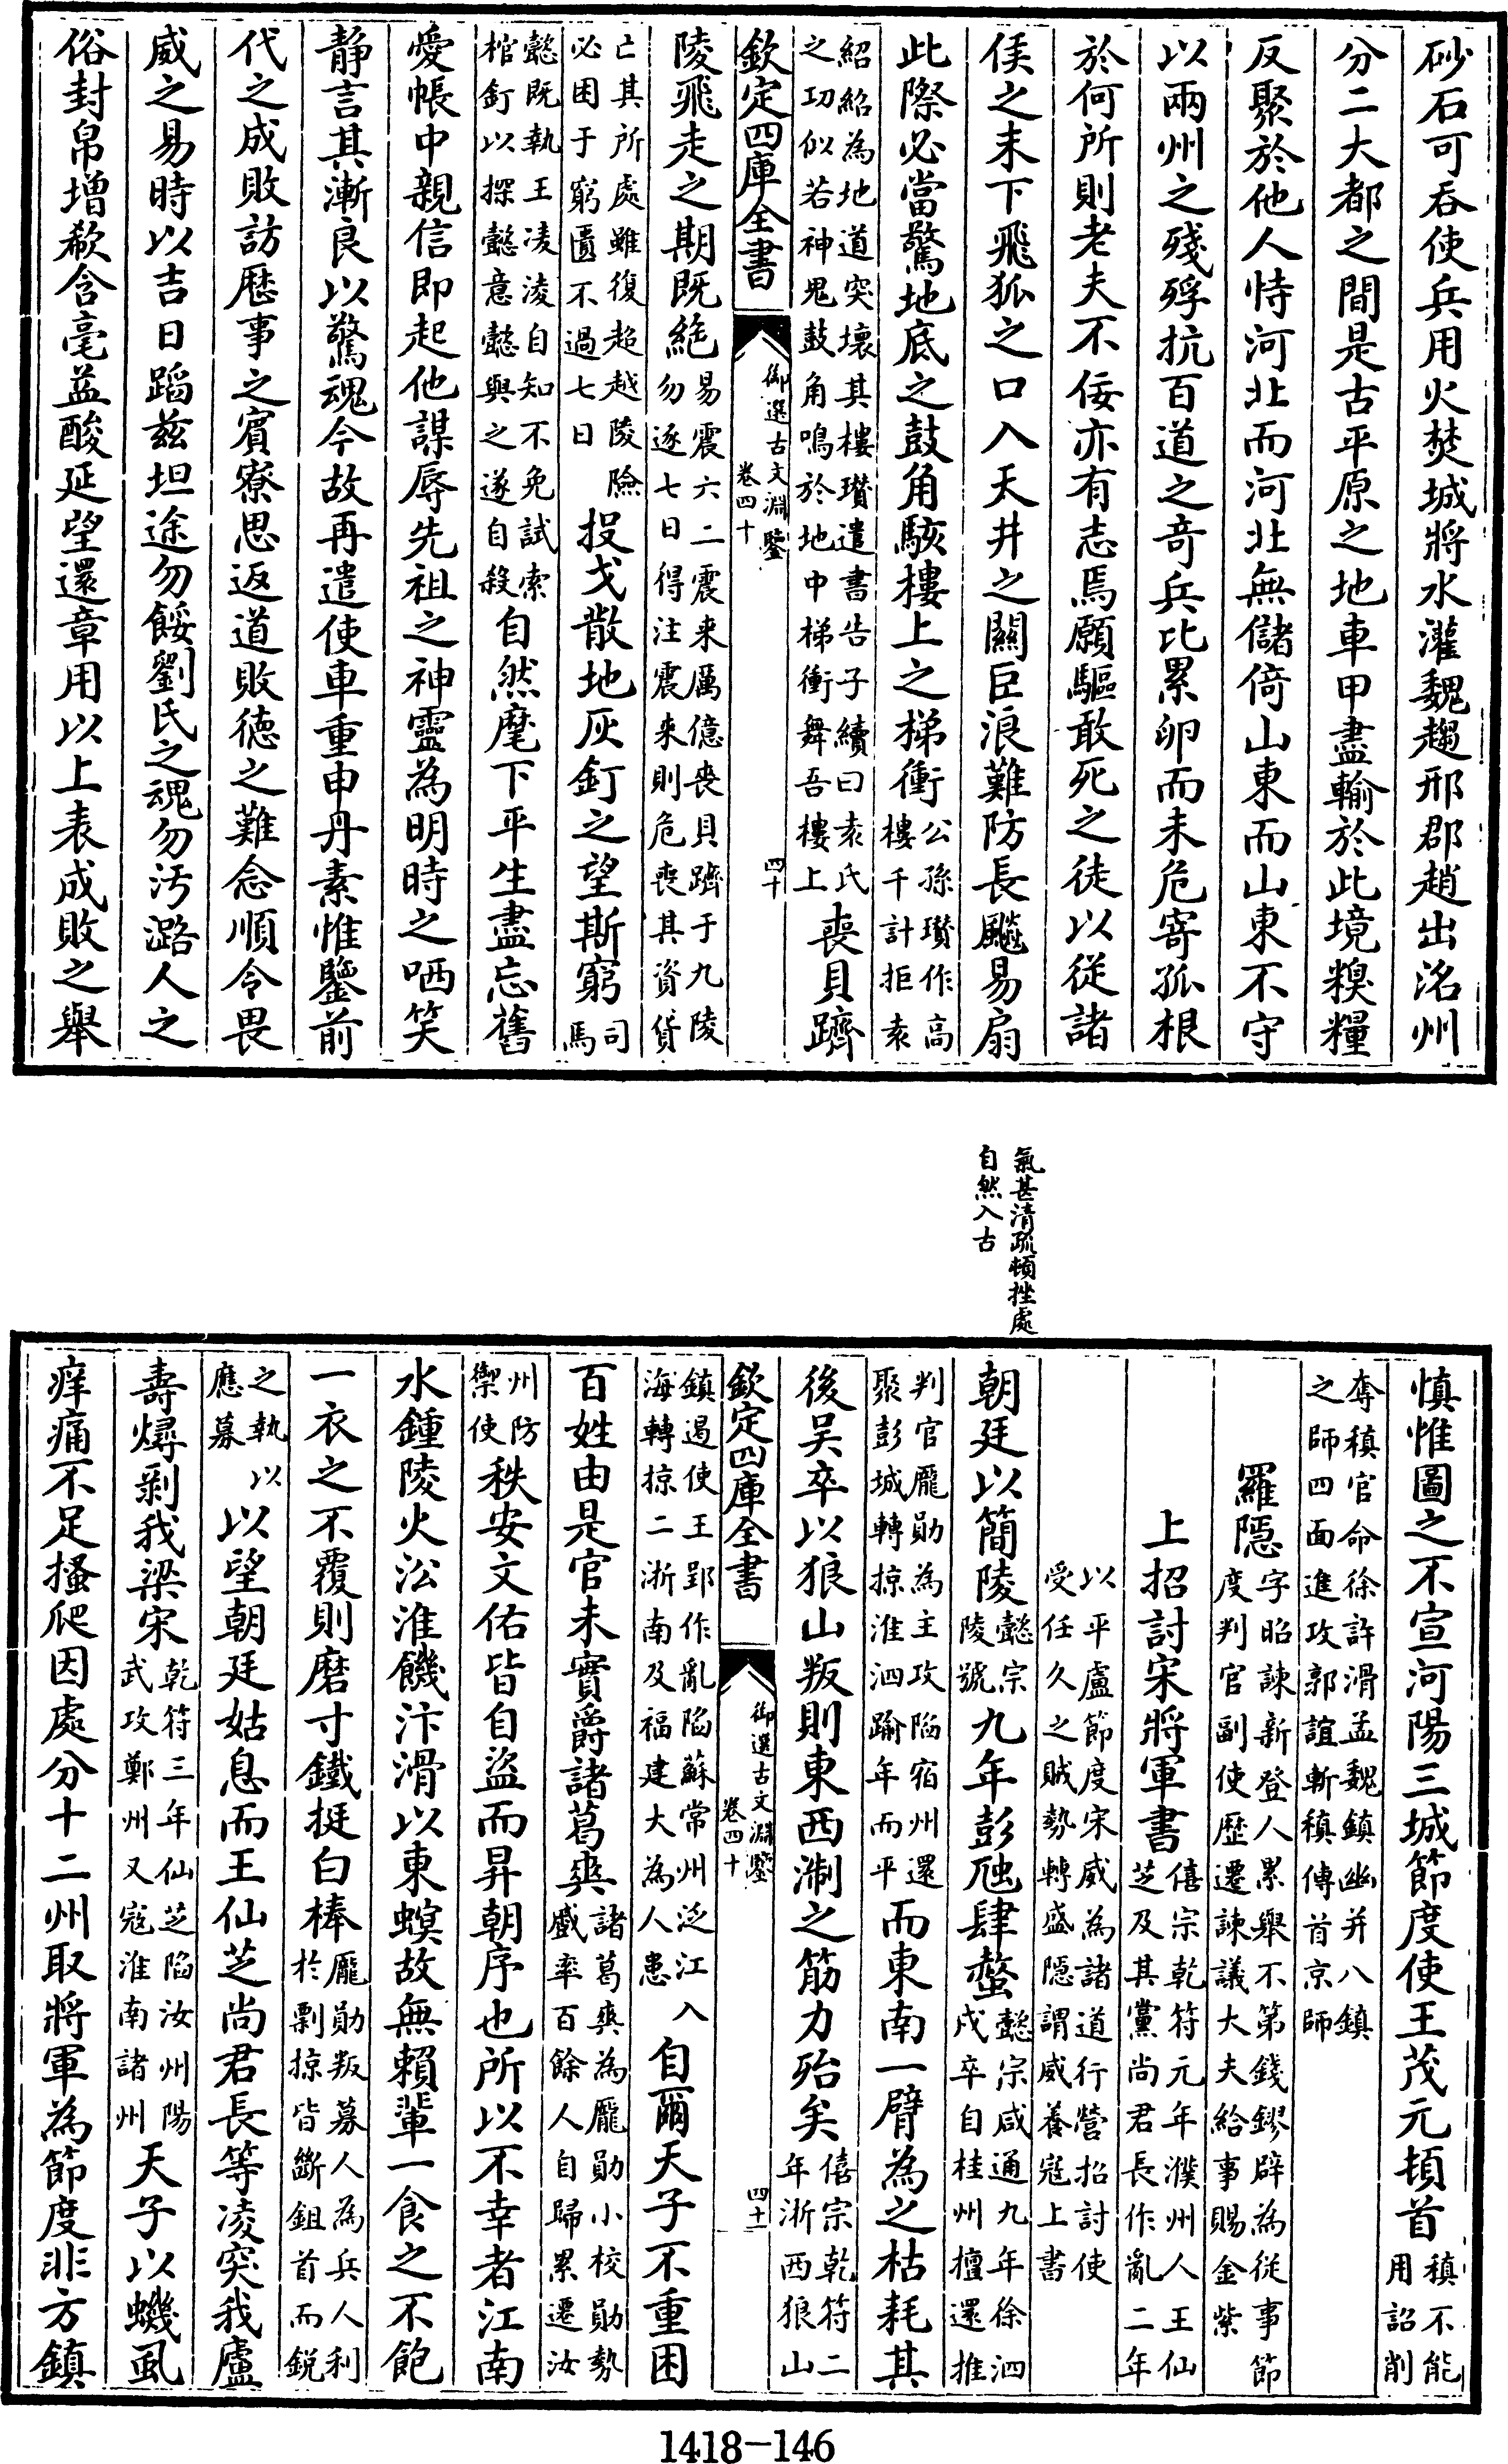 砂石可吞使兵用火焚城將水灌魏趨邢郡趙出洺州
分二大都之間是古平原之地車甲盡輸於此境糗糧
反聚於他人恃河北而河北無儲倚山東而山東不守
以兩州之殘殍抗百道之竒兵比累卵而未危寄孤根
於何所則老夫不佞亦有志焉願驅敢死之徒以從諸
侯之末下飛狐之口入天井之關巨浪難防長飈易扇
此際必當驚地底之鼓角駭樓上之梯衝公孫瓚作高
樓千計拒袁
紹紹為地道突壞其樓瓚遣書告子續曰袁氏
之功似若神鬼鼓角鳴於地中梯衝舞吾樓上喪貝躋
欽定四庫全書
御選古文淵鑒
卷四十
四十
陵飛走之期既絶易震六二震来厲億喪貝躋于九陵
勿逐七日得注震来則危喪其資貨
亡其所處雖復超越陵險
必困于窮匱不過七日投戈散地灰釘之望斯窮司
馬
懿既執王凌淩自知不免試索
棺釘以探懿意懿與之遂自殺自然麾下平生盡忘舊
愛帳中親信即起他謀辱先祖之神靈為明時之哂笑
静言其漸良以驚魂今故再遣使車重申丹素惟鑒前
代之成敗訪歴事之賓寮思返道敗德之難念順令畏
威之易時以吉日蹈兹坦途勿餒劉氏之魂勿汚潞人之
俗封帛增欷含毫益酸延望還章用以上表成敗之舉
氣甚清疏頓挫處
自然入古
慎惟圖之不宣河陽三城節度使王茂元頓首稹不能
用詔削
奪稹官命徐許滑孟魏鎮幽并八鎮
之師四面進攻郭誼斬稹傳首京師
羅隱字昭諫新登人累舉不第錢鏐辟為從事節
度判官副使歴遷諫議大夫給事賜金紫
上招討宋將軍書僖宗乾符元年濮州人王仙
芝及其黨尚君長作亂二年
以平盧節度宋威為諸道行營招討使
受任久之賊勢轉盛隱謂威養寇上書
朝廷以簡陵懿宗
陵號九年彭虺肆螫懿宗咸通九年徐泗
戍卒自桂州擅還推
判官龎勛為主攻陷宿州還
聚彭城轉掠淮泗踰年而平而東南一臂為之枯耗其
後吴卒以狼山叛則東西淛之筋力殆矣僖宗乾符二
年浙西狼山
欽定四庫全書
御選古文淵鑒
卷四十
四十一
鎮遏使王郢作亂陷蘇常州泛江入
海轉掠二浙南及福建大為人患自爾天子不重困
百姓由是官未實爵諸葛爽諸葛爽為龎勛小校勛勢
蹙率百餘人自歸累遷汝
州防
禦使秩安文佑皆自盜而昇朝序也所以不幸者江南
水鍾陵火㳂淮饑汴滑以東螟故無賴輩一食之不飽
一衣之不覆則磨寸鐵挺白棒龎勛叛募人為兵人利
於剽掠皆斷鉏首而鋭
之執以
應募以望朝廷姑息而王仙芝尚君長等凌突我廬
壽燖剥我梁宋乾符三年仙芝陷汝州陽
武攻鄭州又寇淮南諸州天子以蟣虱
痒痛不足搔爬因處分十二州取將軍為節度非方鎮
1418-146